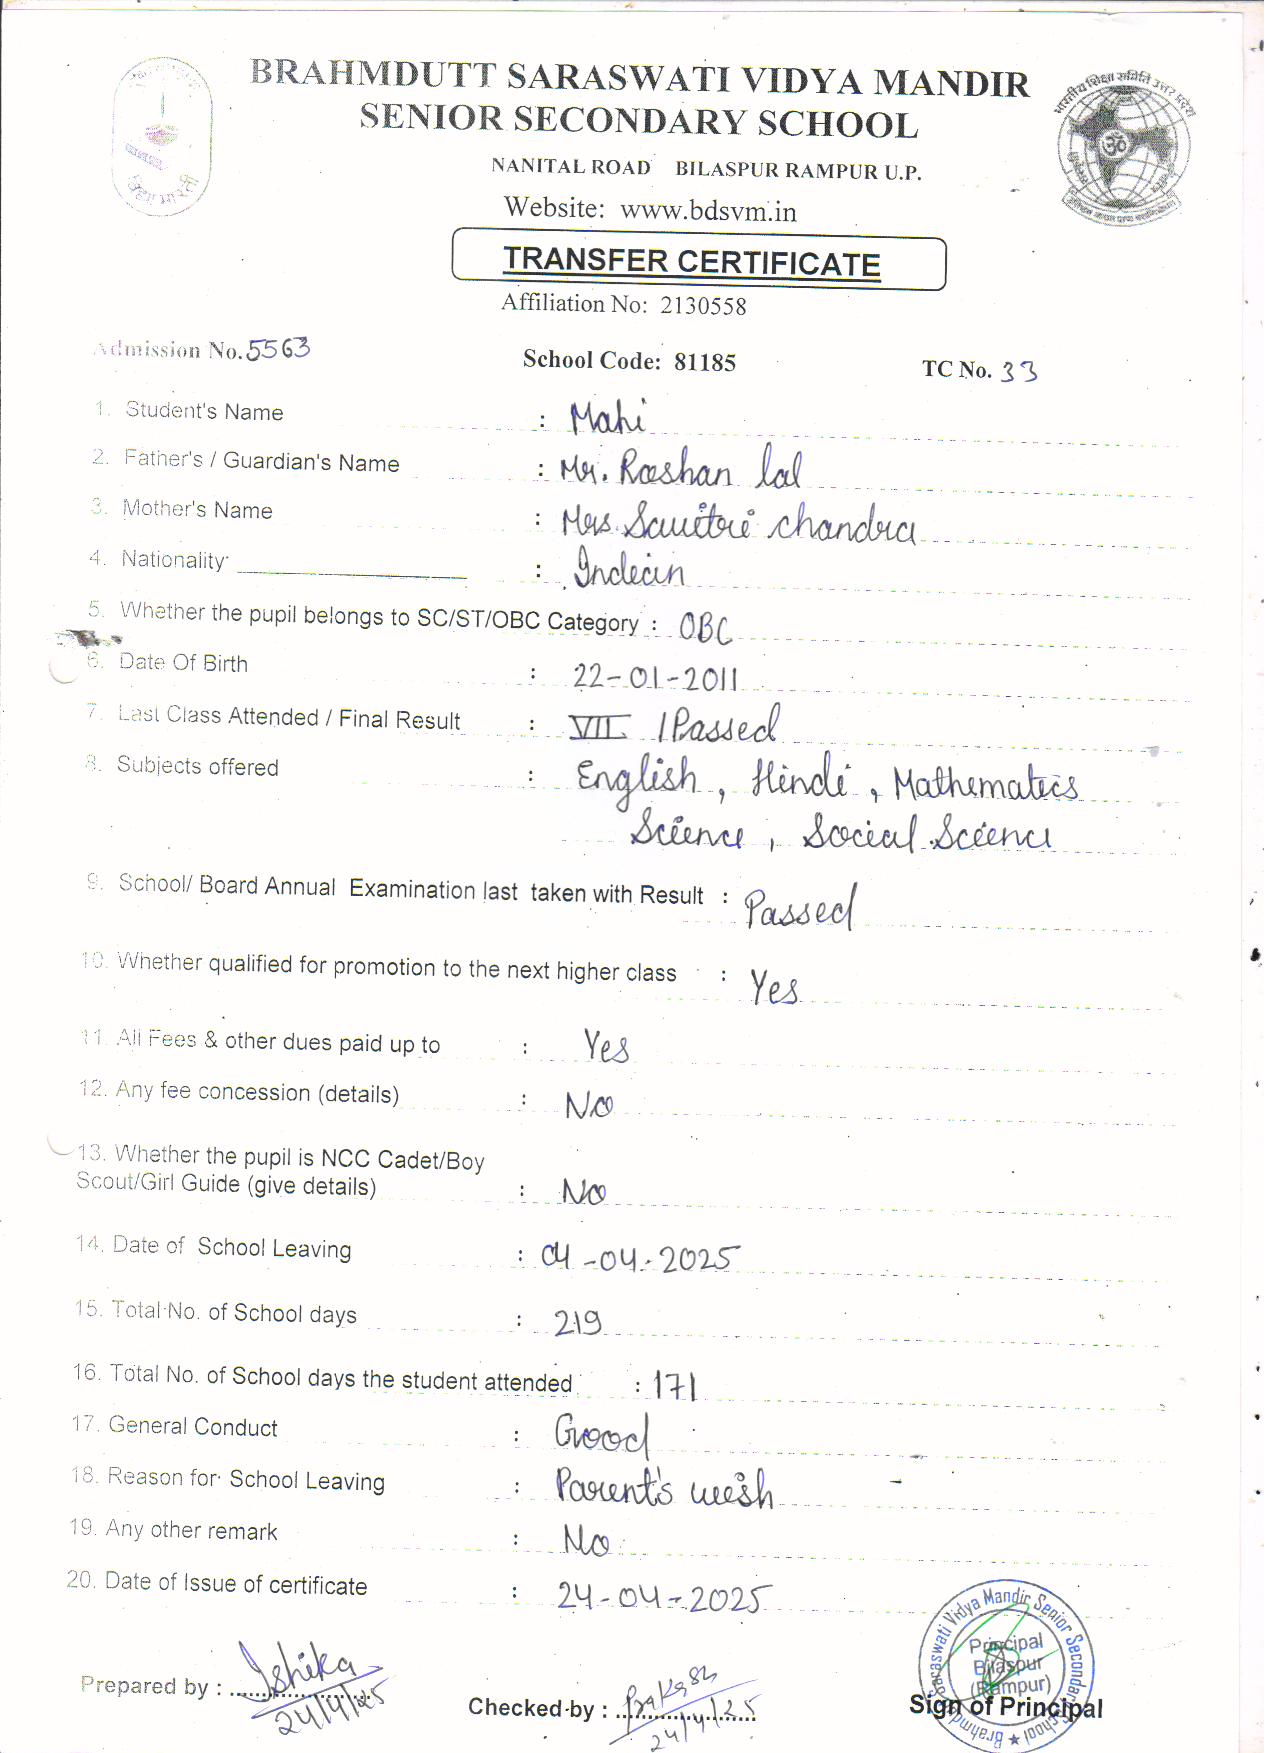 BRAHMDUTT SARASWATI VIDYA MANDIR
SENIOR SECONDARY SCHOOL
NANITAL ROAD BILASPUR RAMPUR U.P.
Website: www.bdsvm.in
TRANSFER CERTIFICATE
Affiliation No: 2130558
Admission No. 5563 School Code: 81185 TC No. 33
1. Student's Name : Mahi
2. Father's / Guardian's Name : Mr. Roshan lal
3. Mother's Name : Mrs. Savitri Chandra
4. Nationality : Indian
5. Whether the pupil belongs to SC/ST/OBC Category : OBC
6. Date Of Birth : 22-01-2011
7. Last Class Attended / Final Result : VII / Passed
8. Subjects offered : English, Hindi, Mathematics
Science, Social Science
9. School/ Board Annual Examination last taken with Result : Passed
10. Whether qualified for promotion to the next higher class : Yes
11. All Fees & other dues paid up to : Yes
12. Any fee concession (details) : No
13. Whether the pupil is NCC Cadet/Boy
Scout/Girl Guide (give details) : No
14. Date of School Leaving : 04-04-2025
15. Total No. of School days : 219
16. Total No. of School days the student attended : 171
17. General Conduct : Good
18. Reason for School Leaving : Parent's wish
19. Any other remark : No
20. Date of Issue of certificate : 24-04-2025
Prepared by : Ishika
24/4/25
Checked by : Prakash
24/4/25
Saraswati Vidya Mandir Senior Secondary School
Principal
Bilaspur
(Rampur)
Sign of Principal